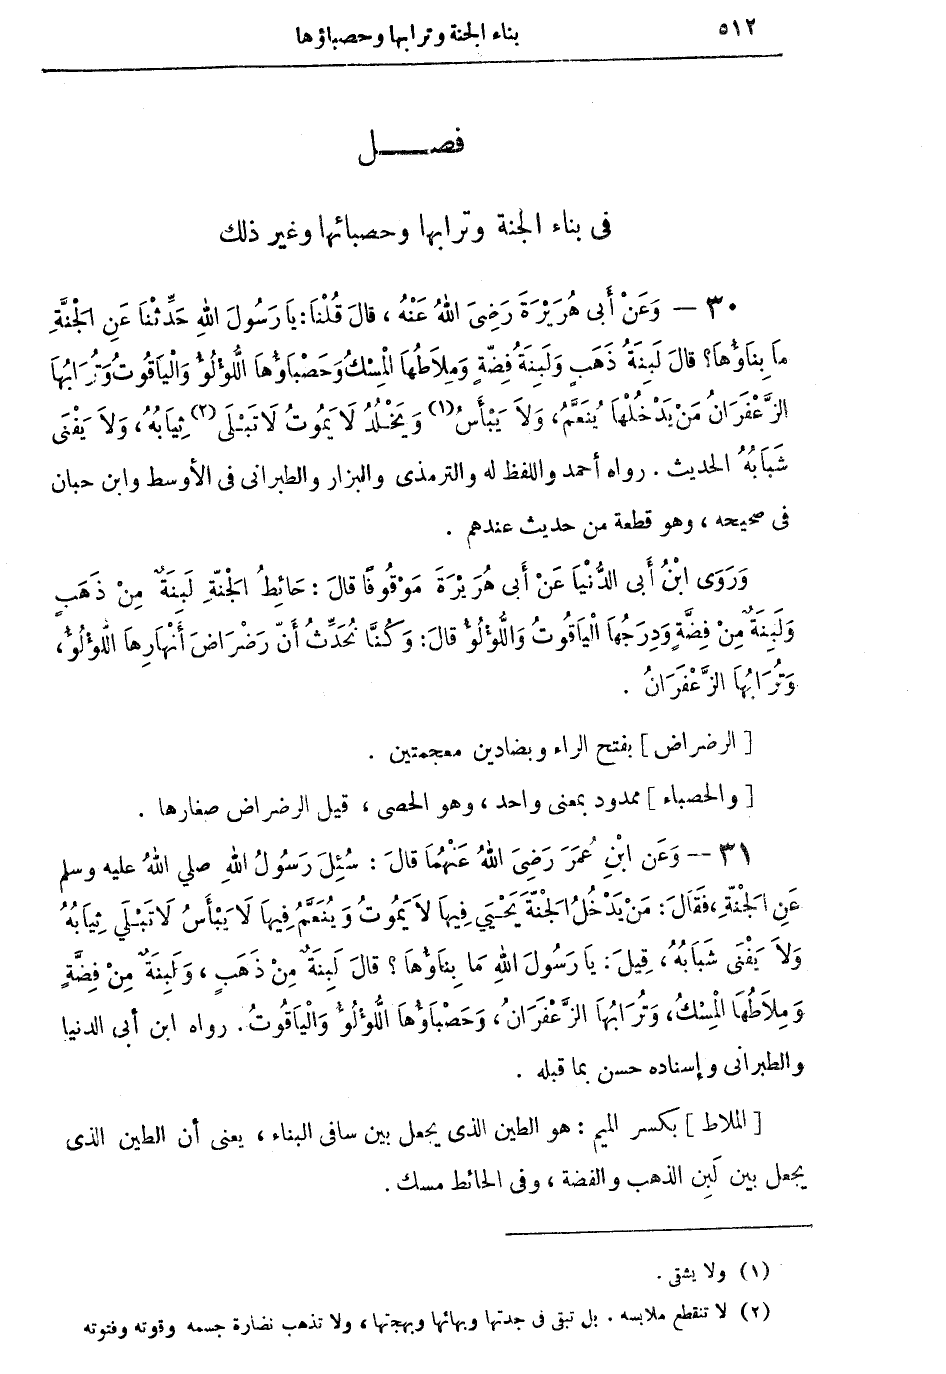 ٥١٢
بناء الجنة وترابها وحصباؤها
فصـــل
فى بناء الجنة وترابها وحصبائها وغير ذلك
٣٠ — وَعَنْ أَبِى هُرَيْرَةَ رَضِىَ اللهُ عَنْهُ ، قالَ قُلْنَا: يَا رَسُولَ اللهِ حَدِّثْنَا عَنِ الْجَنَّةِ
ما بِنَاؤُهَا؟ قالَ لَبِنَةُ ذَهَبٍ وَلَبِنَةُ فِضَّةٍ وَمِلَاطُهَا الْمِسْكُ وَحَصْبَاؤُهَا اللُّؤْلُؤُ وَالْيَاقُوتُ وَتُرَابُهَا
الزَّعْفَرَانُ مَنْ يَدْخُلْهَا يُنَعَّمُ، وَلاَ يَبْأَسُ (١) وَيَخْلُدُ لَا يَمُوتُ لَا تَبْلَى (٢) ثِيَابُهُ، وَلاَ يَفْنَى
شَبَابُهُ الحديث . رواه أحمد واللفظ له والترمذى والبزار والطبرانى فى الأوسط وابن حبان
فى صحيحه ، وهو قطعة من حديث عندهم .
وَرَوَى ابْنُ أَبِى الدُّنْيَا عَنْ أَبِى هُرَيْرَةَ مَوْقُوفًا قالَ : حَائِطُ الْجَنَّةِ لَبِنَةٌ مِنْ ذَهَبٍ
وَلَبِنَةٌ مِنْ فِضَّةٍ وَدِرَجُهَا الْيَاقُوتُ وَاللُّؤْلُؤُ قالَ: وَكُنَّا نُحَدَّثُ أَنَّ رَضْرَاضَ أَنْهَارِهَا اللُّؤْلُؤُ،
وَتُرَابُهَا الزَّعْفَرَانُ .
[ الرضراض ] بفتح الراء وبضادين معجمتين .
[ والحصباء ] ممدود بمعنى واحد ، وهو الحصى ، قيل الرضراض صغارها .
٣١ — وَعَن ابْنِ عُمَرَ رَضِىَ اللهُ عَنْهُمَا قالَ : سُئِلَ رَسُولُ اللهِ صلي اللهُ عليه وسلم
عَنِ الْجَنَّةِ، فَقَالَ: مَنْ يَدْخُلُ الْجَنَّةَ يَحْيَي فِيهَا لاَ يَمُوتُ وَيُنَعَّمُ فِيهَا لاَ يَبْأَسُ لَا تَبْلَي ثِيَابُهُ
وَلاَ يَفْنَى شَبَابُهُ، قِيلَ: يَا رَسُولَ اللهِ مَا بِنَاؤُهَا ؟ قالَ لَبِنَةٌ مِنْ ذَهَبٍ ، وَلَبِنَةٌ مِنْ فِضَّةٍ
وَمِلَاطُهَا الْمِسْكُ، وَتُرَابُهَا الزَّعْفَرَانُ، وَحَصْبَاؤُهَا اللُّؤْلُؤُ وَالْيَاقُوتُ. رواه ابن أبى الدنيا
والطبرانى وإسناده حسن بما قبله .
[ الملاط ] بكسر الميم : هو الطين الذى يجعل بين سافى البناء ، يعنى أن الطين الذى
يجعل بين لَبِن الذهب والفضة ، وفى الحائط مسك .
(١) ولا يشقى .
(٢) لا تنقطع ملابسه . بل تبقى فى جدتها وبهائها وبهجتها ، ولا تذهب نضارة جسمه وقوته وفتوته